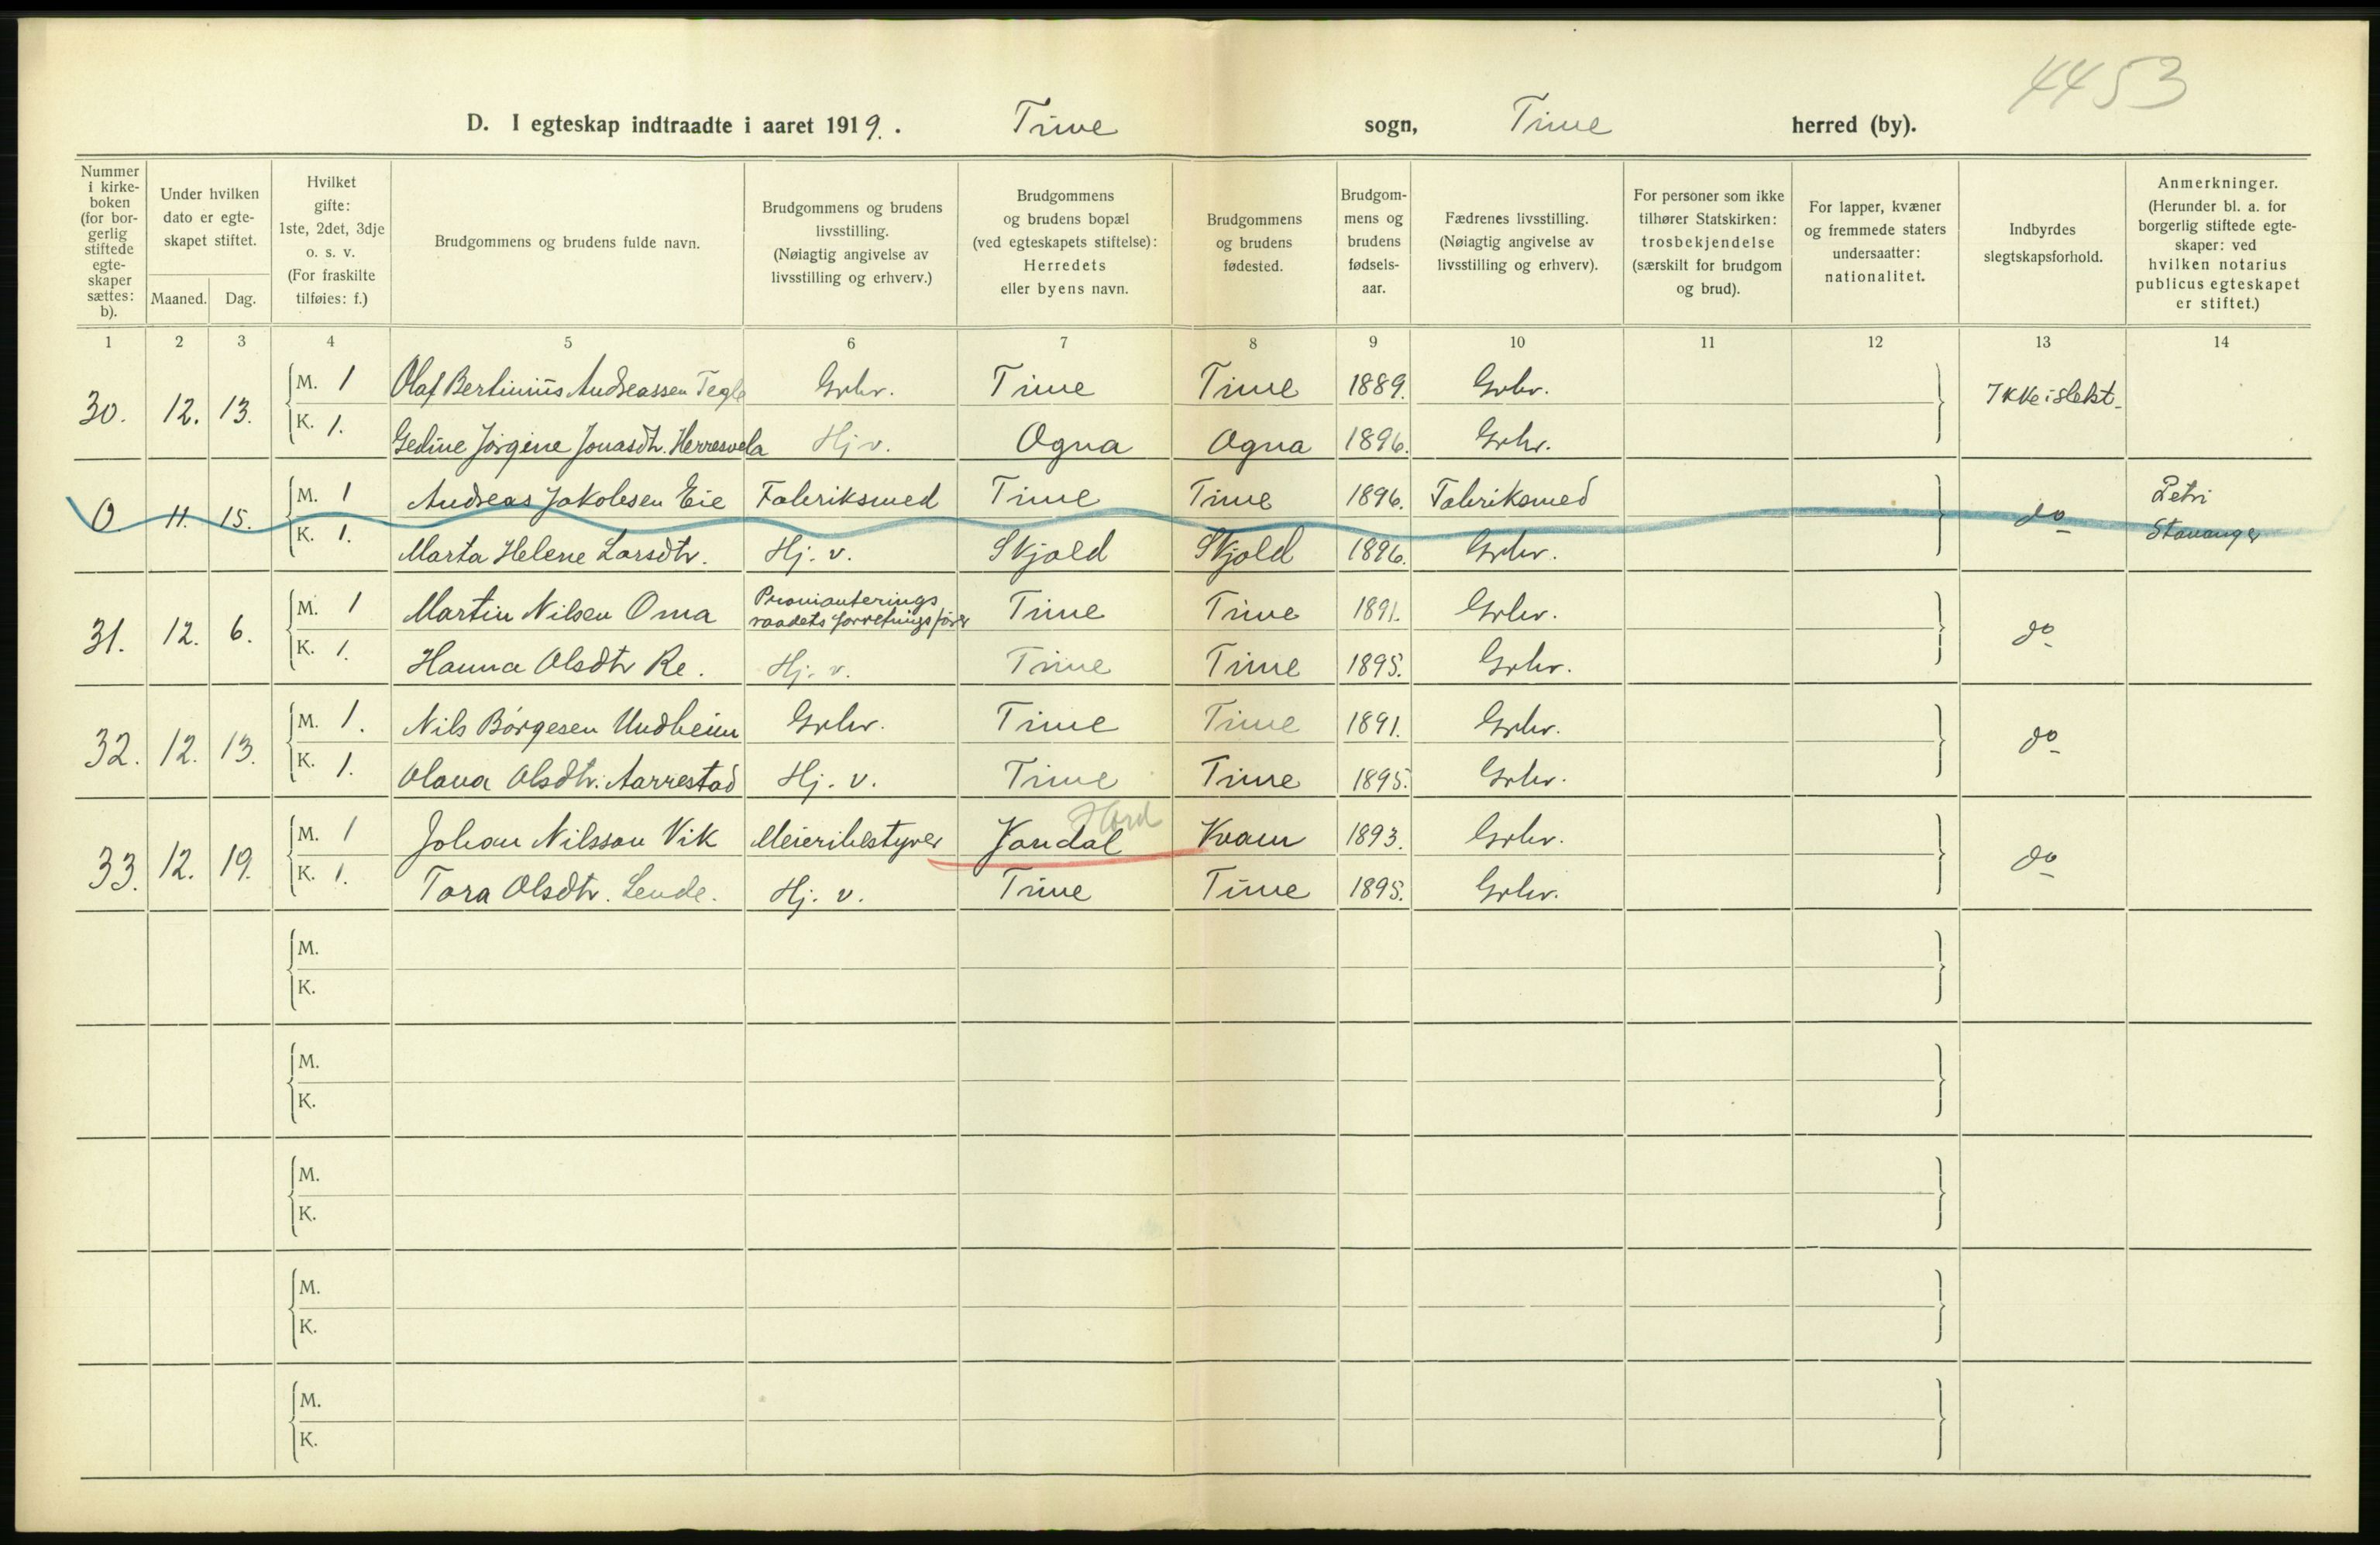 4453
D. I egteskap indtraadte i aaret 1919. . Time sogn, Time herred (by).
Nummer i kirke- boken (for bor- gerlig stiftede egte- skaper sættes: b).
Under hvilken dato er egte- skapet stiftet.
Maaned. Dag.
Hvilket gifte: 1ste, 2det, 3dje o. s. v. (For fraskilte tilføies: f.)
Brudgommens og brudens fulde navn.
Brudgommens og brudens livsstilling. (Nøiagtig angivelse av livsstilling og erhverv.)
Brudgommens og brudens bopæl (ved egteskapets stiftelse): Herredets eller byens navn.
Brudgommens og brudens fødested.
Brudgom- mens og brudens fødsels- aar.
Fædrenes livsstilling. (Nøiagtig angivelse av livsstilling og erhverv).
For personer som ikke tilhører Statskirken: trosbekjendelse (særskilt for brudgom og brud).
For lapper, kvæner og fremmede staters undersaatter: nationalitet.
Indbyrdes slegtskapsforhold.
Anmerkninger. (Herunder bl. a. for borgerlig stiftede egte- skaper: ved hvilken notarius publicus egteskapet er stiftet.)
1 2 3 4 5 6 7 8 9 10 11 12 13 14
30. 12. 13. M. 1 Olaf Bertinius Andreassen Tegle Grbr. Time Time 1889. Grbr. Ikke i slekt.
K. 1. Gedine Jørgine Jonasdtr. Herresvela Hj v. Ogna Ogna 1896. Grbr.
0 11. 15. M. 1 Andreas Jakobsen Eie Fabriksmed Time Time 1896. Fabriksmed do Petri
K. 1. Marta Helene Larsdtr. Hj. v. Skjold Skjold 1896. Grbr. Stavanger
31. 12. 6. M. 1 Martin Nilsen Oma Provianterings raadets forretningsfører Time Time 1891. Grbr. do
K. 1. Hanna Olsdtr Re. Hj. v. Time Time 1895. Grbr.
32. 12. 13. M. 1. Nils Børgesen Undheim Grbr. Time Time 1891. Grbr. do
K. 1. Olava Olsdtr. Aarrestad Hj. v. Time Time 1895. Grbr.
Hord
33. 12. 19. M. 1 Johan Nilsson Vik Meieribestyrer Jondal Kvam 1893. Grbr. do
K. 1. Tora Olsdtr. Lende. Hj. v. Time Time 1895. Grbr.
M.
K.
M.
K.
M.
K.
M.
K.
M.
K.